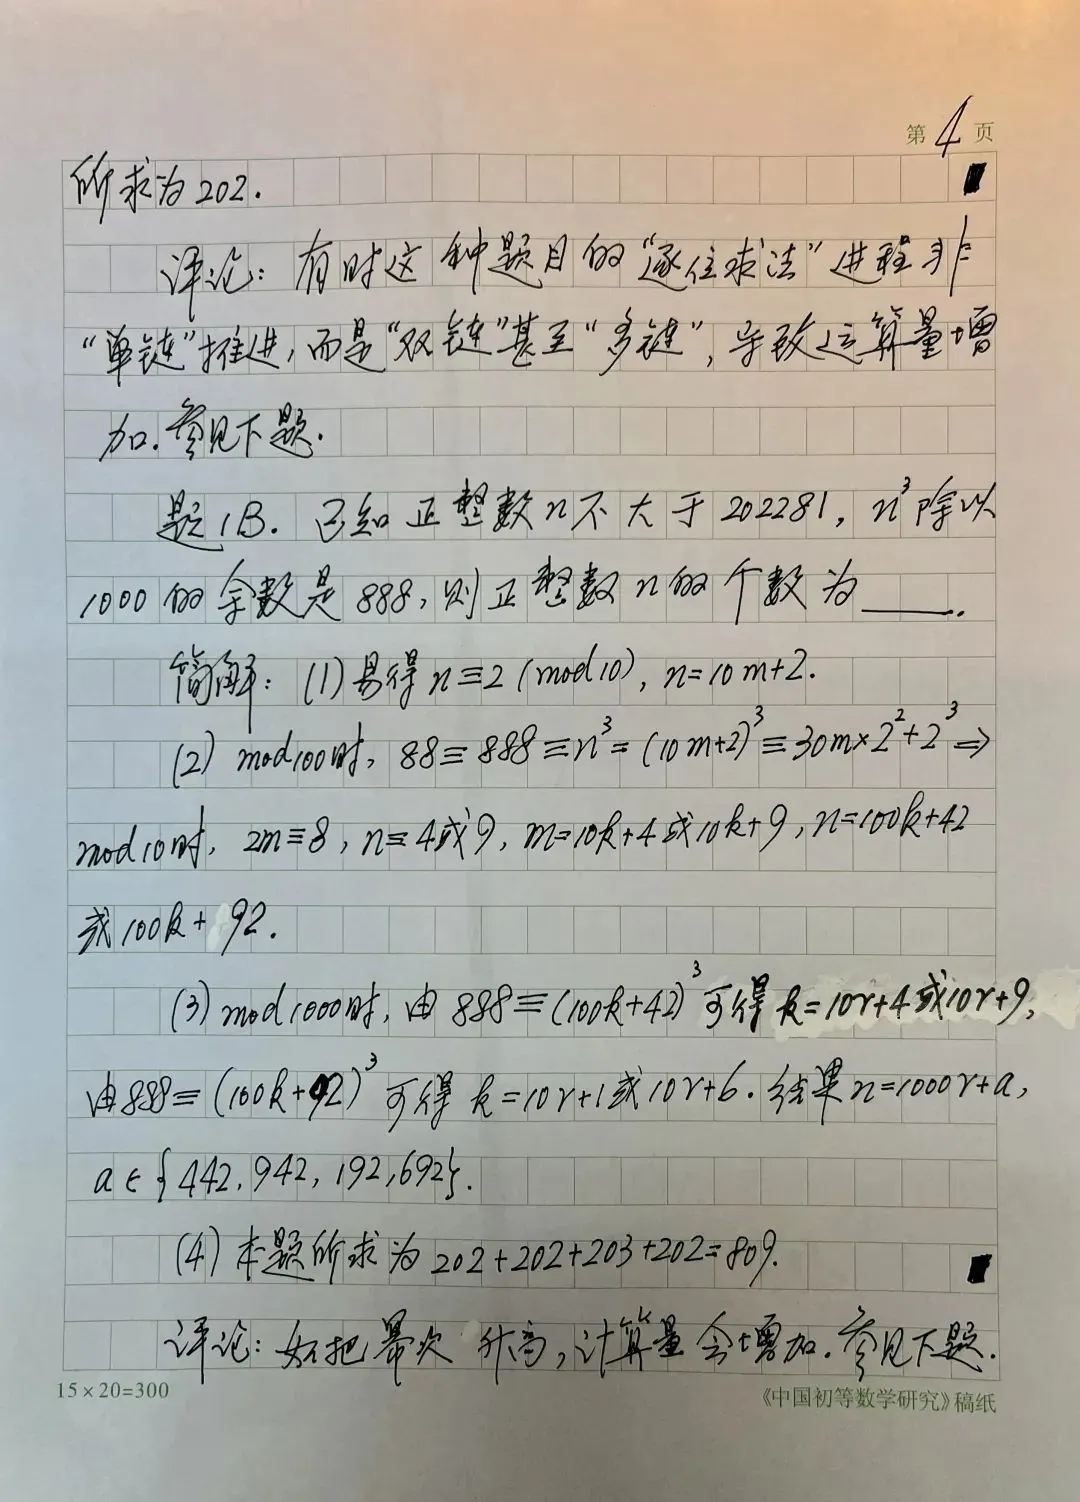 第4页
所求为202.
评论:有时这种题目的“逐位求法”进程非
“单链”推进,而是“双链”甚至“多链”,导致运算量增
加.参见下题.
题1B.已知正整数n不大于202281,n³除以
1000的余数是888,则正整数n的个数为____.
简解:(1)易得n≡2(mod10),n=10m+2.
(2)mod100时,88≡888≡n³=(10m+2)³≡30m×2²+2³⇒
mod10时,2m≡8,n≡4或9,m=10k+4或10k+9,n=100k+42
或100k+92.
(3)mod1000时,由888≡(100k+42)³可得k=10r+4或10r+9,
由888≡(100k+92)³可得k=10r+1或10r+6.结果n=1000r+a,
a∈{442,942,192,692}.
(4)本题所求为202+202+203+202=809.
评论:如把幂次升高,计算量会增加.参见下题.
15×20=300
《中国初等数学研究》稿纸